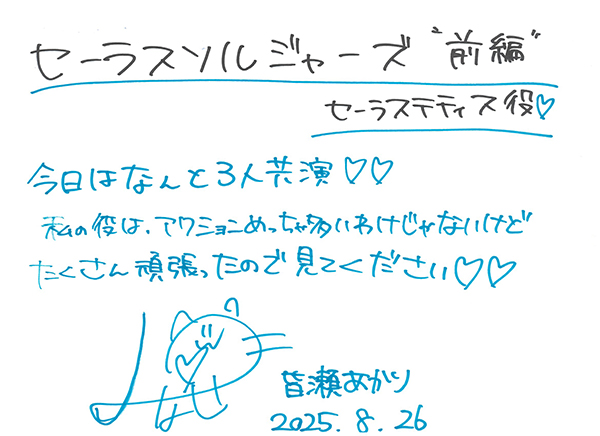 セーラスソルジャーズ “前編”
セーラステティス役♡
今日はなんと3人共演♡♡
私の役は、アクションめっちゃ多いわけじゃないけど
たくさん頑張ったので見てください♡♡
皆瀬あかり
2025.8.26